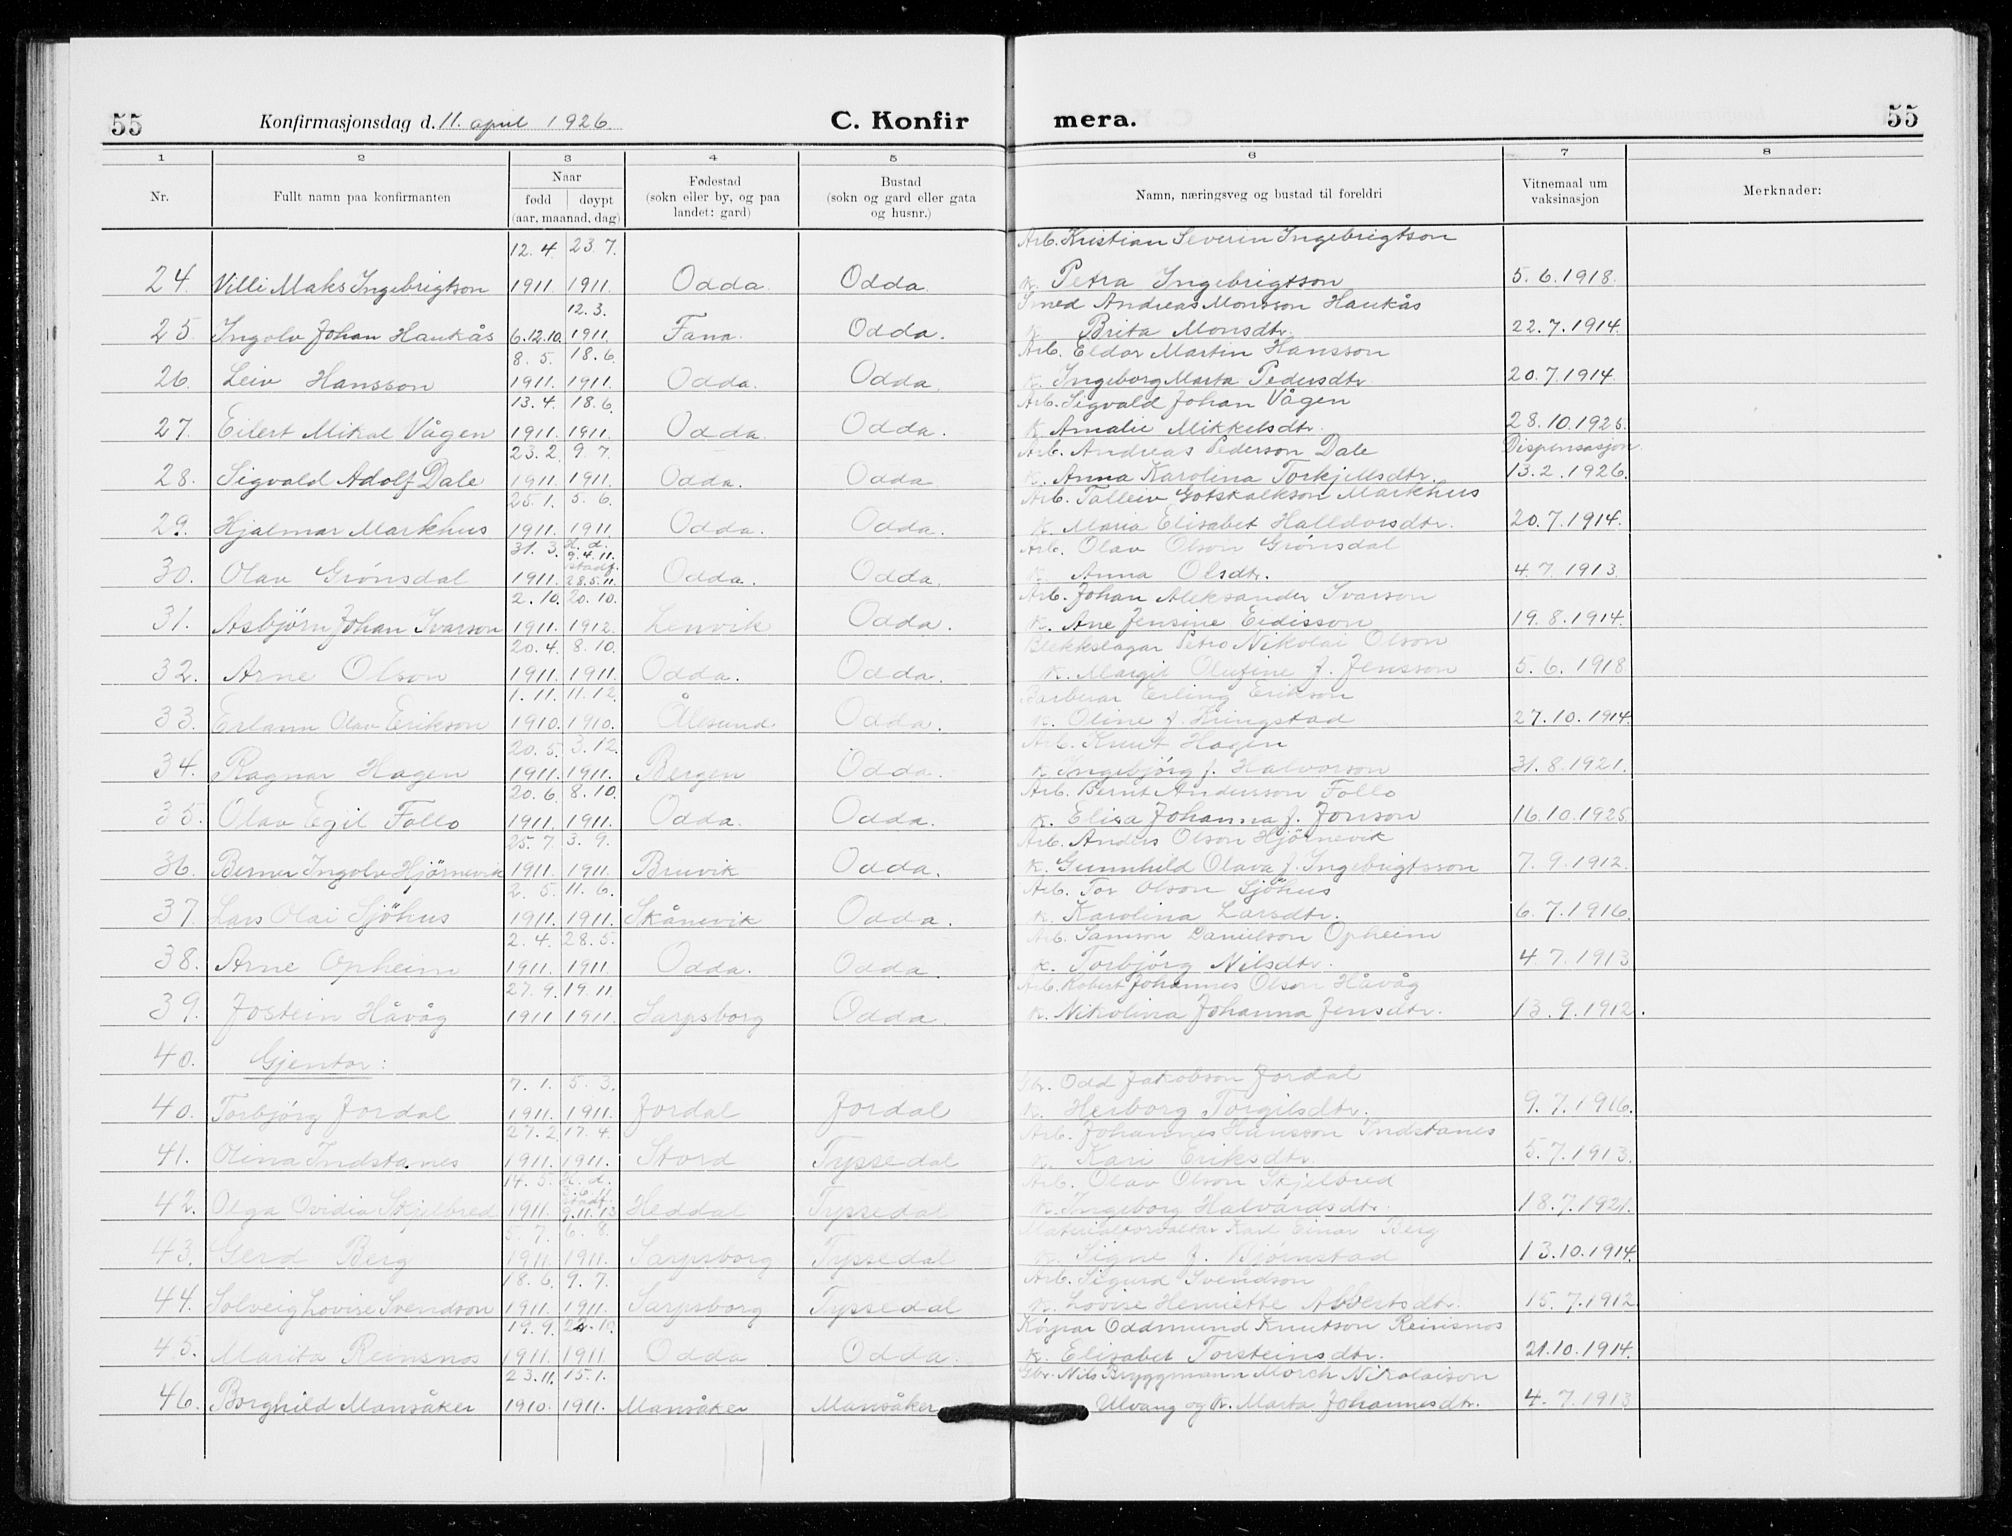 55 Konfirmasjonsdag d. 11. april 1926. C. Konfir mera. 55
1 2 3 4 5 6 7 8
Nr. Fullt namn paa konfirmanten Naar fødd døypt (aar, maanad, dag) Fødestad (sokn eller by, og paa landet: gard) Bustad (sokn og gard eller gata og husnr.) Namn, næringsveg og bustad til foreldri Vitnemaal um vaksinasjon Merknader:
12. 4. 23. 7. Arb. Kristian Severin Ingebrigtson
24. Villi Maks Ingebrigtson 1911. 1911. Odda. Odda. k. Petra Ingebrigtson 5. 6. 1918.
12. 3. Smed Andreas Monsson Haukås
25. Ingolv Johan Haukås 6.12.10. 1911. Fana. Odda. k. Brita Monsdtr. 22. 7. 1914.
8. 5. 18. 6. Arb. Eldor Martin Hansson
26. Leiv Hansson 1911. 1911. Odda. Odda. k. Ingeborg Marta Pedersdtr. 20. 7. 1914.
13. 4. 18. 6. Arb. Sigvald Johan Vågen
27. Eilert Mikal Vågen 1911. 1911. Odda. Odda. k. Amalie Mikkelsdtr. 28. 10. 1925.
23. 2. 9. 7. Arb. Andreas Pederson Dale Dispensasjon.
28. Sigvald Adolf Dale 1911. 1911. Odda. Odda k. Anna Karolina Torkjellsdtr. 13. 2. 1926.
25. 1. 5. 6. Arb. Talleiv Gotskalkson Markhus
29. Hjalmar Markhus 1911. 1911. Odda. Odda. k. Maria Elisabet Halldorsdtr. 20. 7. 1914.
31. 3. H. d. 9. 4. 11. Arb. Olav Olson Grønsdal
30. Olav Grønsdal 1911. stadf. 28. 5. 11. Odda. Odda. k. Anna Olsdtr. 4. 7. 1913.
2. 10. 20. 10. Arb. Johan Aleksander Ivarson
31. Asbjørn Johan Ivarson 1911. 1912. Lenvik Odda. k. Ane Jensine Eidisson 19. 8. 1914.
20. 4. 8. 10. Blekkslagar Petro Nikolai Olson
32. Arne Olson 1911. 1911. Odda. Odda. k. Margit Olufine f. Jensson 5. 6. 1918
1. 11. 11. 12. Barberar Erling Erikson
33. Erlann Olav Erikson 1910. 1910. Ålesund Odda. k. Oline f. Kringstad 27. 10. 1914.
20. 5. 3. 12. Arb. Knut Hagen
34. Ragnar Hagen 1911. 1911. Bergen Odda. k. Ingebjørg f. Halvorson 31. 8. 1921.
20. 6. 8. 10. Arb. Bernt Andersson Follo
35. Olav Egil Follo 1911. 1911. Odda. Odda. k. Elisa Johanna f. Jonson 16. 10. 1925.
25. 7. 3. 9. Arb. Anders Olson Hjørnevik
36. Berner Ingolv Hjørnevik 1911. 1911. Bruvik Odda. k. Gunnhild Olava f. Ingebrigtsson 7. 9. 1912.
2. 5. 11. 6. Arb. Tor Olson Sjøhus
37. Lars Olai Sjøhus 1911. 1911. Skånevik Odda. k. Karolina Larsdtr. 6. 7. 1916.
2. 4. 28. 5. Arb. Samson Danielson Opheim
38. Arne Opheim 1911. 1911. Odda. Odda. k. Torbjørg Nilsdtr. 4. 7. 1913
27. 9. 19. 11. Arb. Robert Johannes Olson Håvåg
39. Jostein Håvåg 1911. 1911. Sarpsborg Odda. k. Nikolina Johanna Jensdtr. 13. 9. 1912.
40. Gjentor:
7. 1. 5. 3. Gbr. Odd Jakobson Jordal
40. Torbjørg Jordal 1911. 1911. Jordal Jordal k. Herborg Torgilsdtr. 9. 7. 1916.
27. 2. 17. 4. Arb. Johannes Hansson Indstanes
41. Olina Indstanes 1911. 1911. Stord Tyssedal k. Kari Eriksdtr. 5. 7. 1913.
14. 5. H. d. Arb. Olav Olson Skjelbred
42. Olga Ovidia Skjelbred 1911. stadf. 9. 11. 13 Heddal Tyssedal k. Ingeborg Halvardsdtr. 18. 7. 1921.
5. 7. 6. 8. Materialforvaltar Karl Einar Berg
43. Gerd Berg 1911. 1911. Sarpsborg Tyssedal k. Signe f. Bjørnstad 13. 10. 1914.
18. 6. 9. 7. Arb. Sigurd Svendson
44. Solveig Lovise Svendson 1911. 1911. Sarpsborg Tyssedal k. Lovise Henriette Albertsdtr. 15. 7. 1912.
19. 9. 22. 10. Køyrar Oddmund Knutson Reinsnos
45. Marita Reinsnos 1911. 1911 Odda Odda. k. Elisabet Torsteinsdtr. 21. 10. 1914.
23. 11. 15. 1. Gbr. Nils Bryggmann Morch Nikolaison
46. Borghild Mansåker 1910. 1911. Mansåker Mansåker Ulvang og k. Marta Johannesdtr. 4. 7. 1913